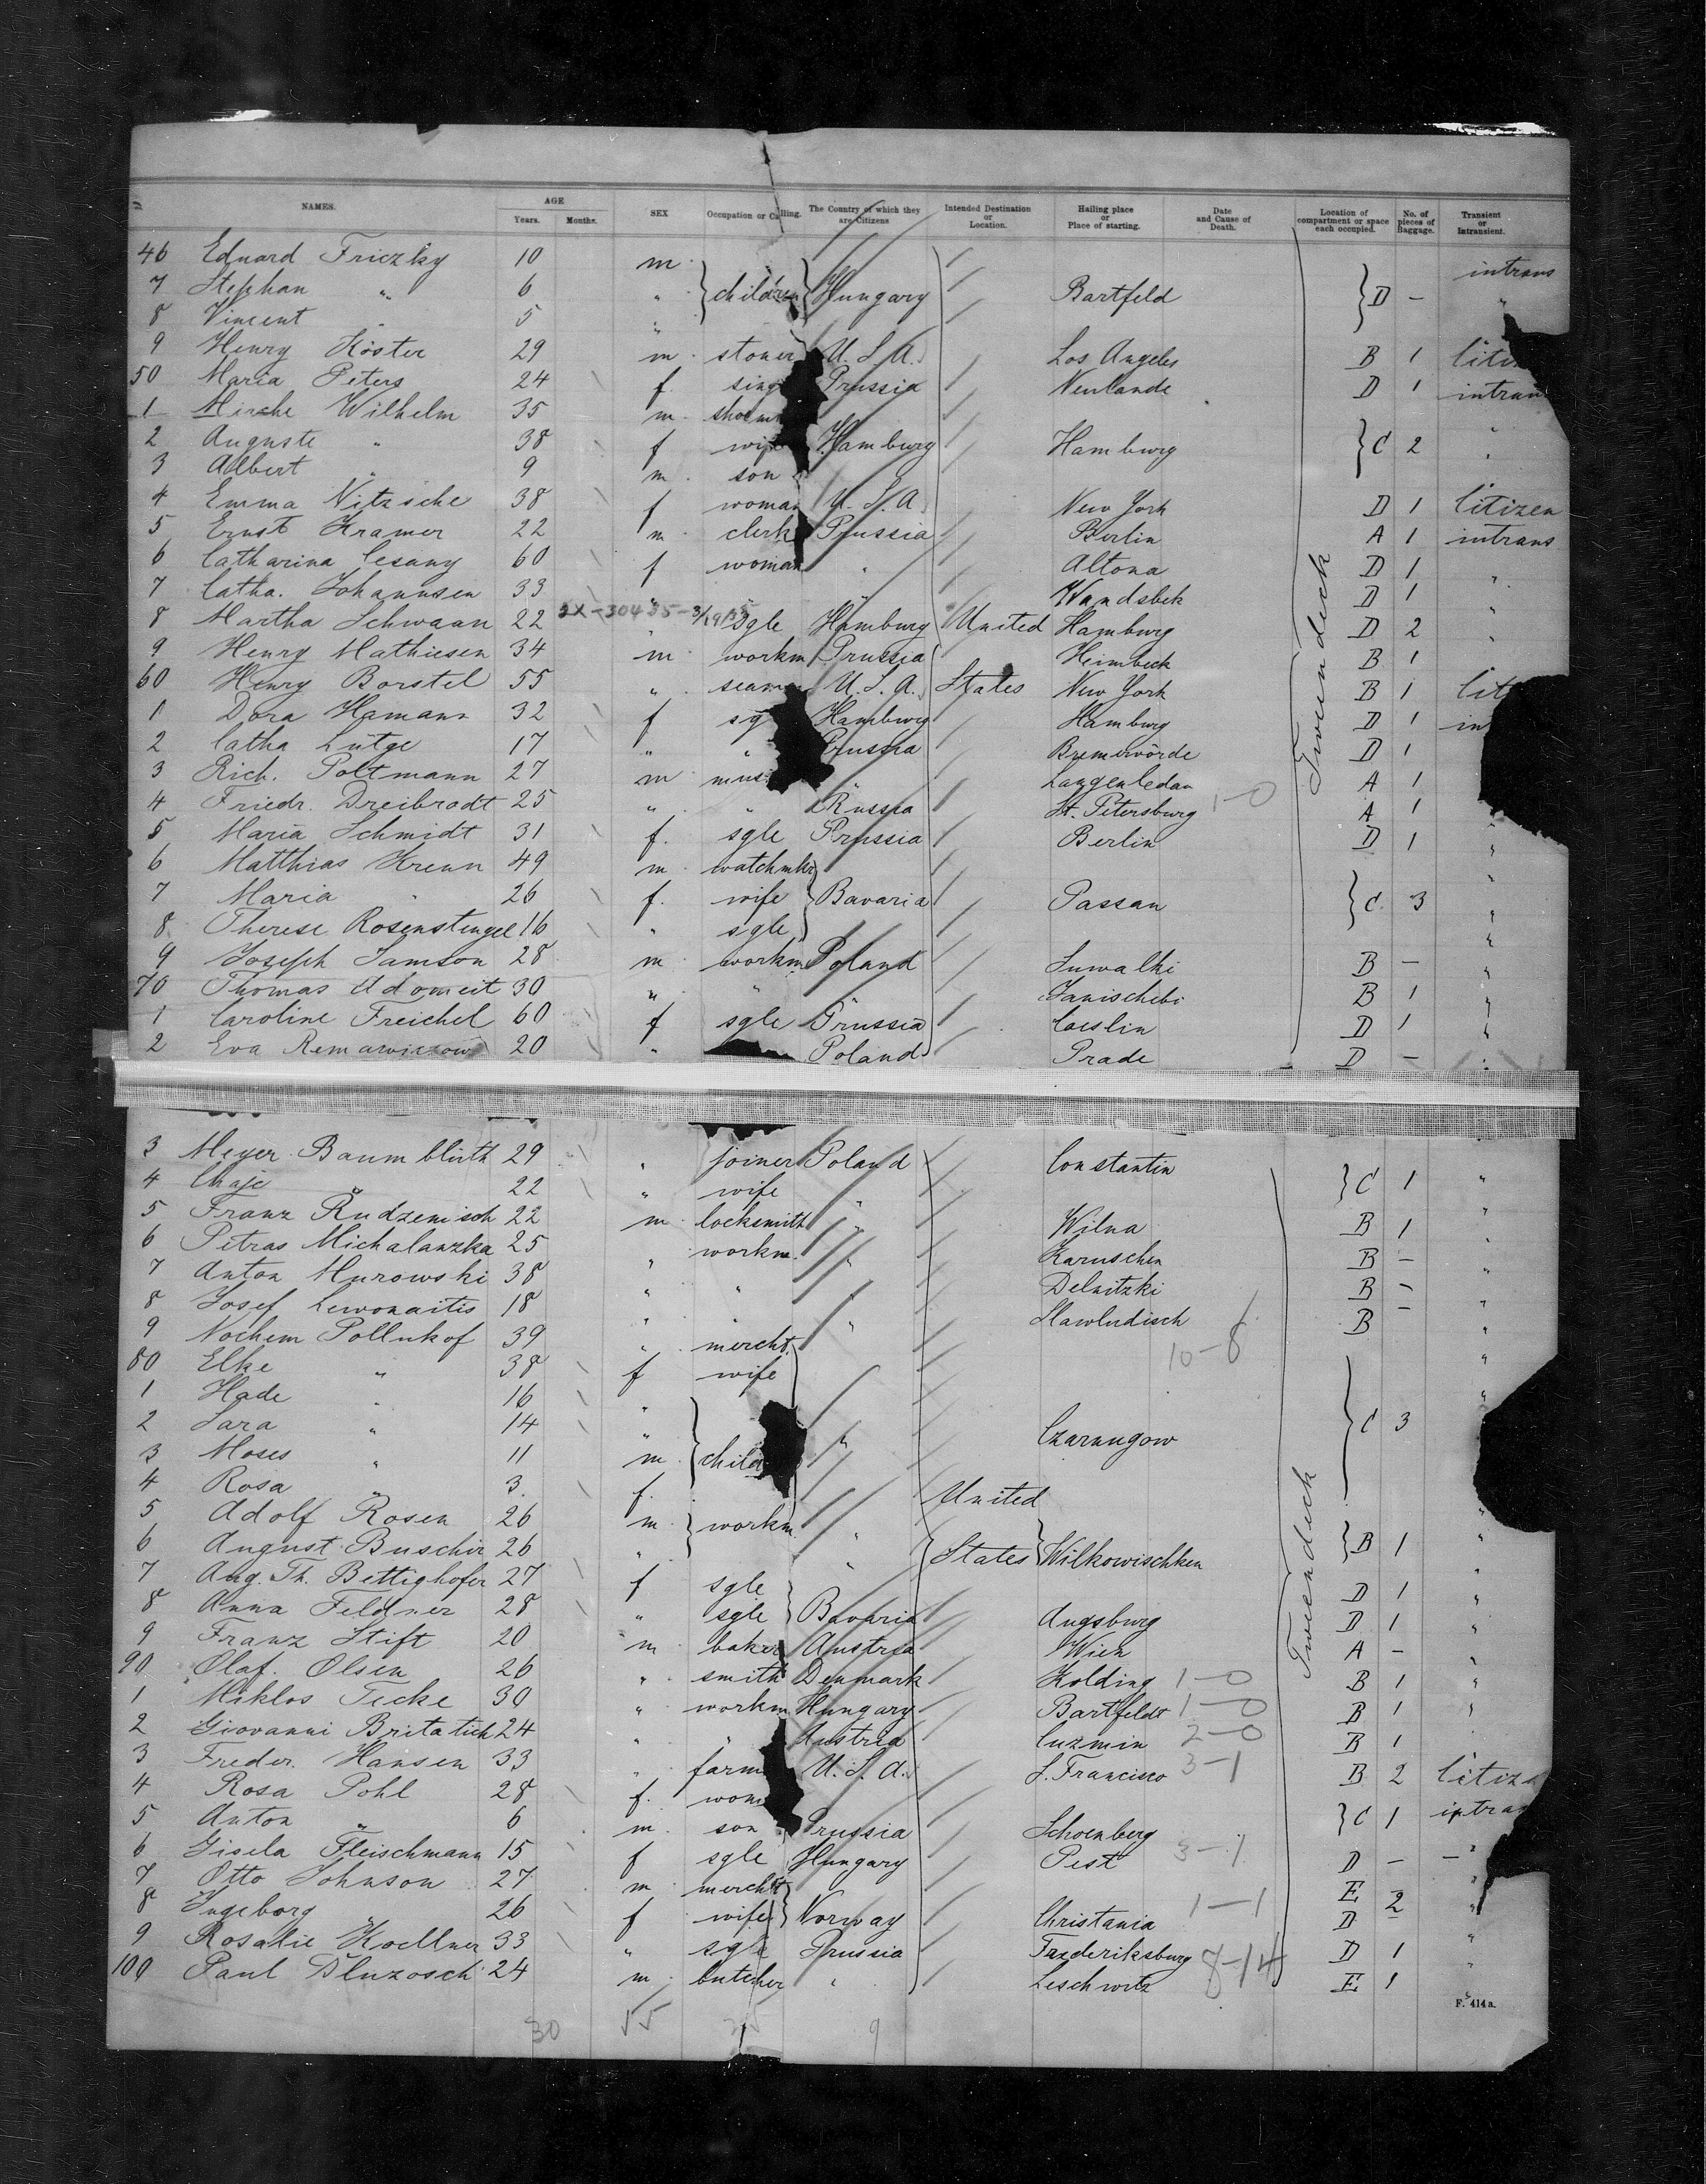 NAMES. AGE Years. Months. SEX Occupation or Calling. The Country of which they are Citizens Intended Destination or Location. Hailing place or Place of starting. Date and Cause of Death. Location of compartment or space each occupied. No. of pieces of Baggage. Transient or Intransient.
46 Eduard Friczky 10 m intrans
7 Stephan " 6 " children Hungary Bartfeld D - "
8 Vincent " 5 "
9 Henry Köster 29 m U.S.A. Los Angeles B 1
50 Maria Peters 24 f. Prussia Neulande D 1
1 Mirche Wilhelm 35 m
2 Auguste " 38 f wife Hamburg Hamburg C 2 "
3 Albert " 9 m son "
4 Emma Nitzsche 38 f woman U.S.A. New York D 1 Citizen
5 Ernst Kramer 22 m clerk Prussia Berlin A 1 intrans
6 Catharina Cesany 60 f woman " Altona D 1
7 Catha. Johannsen 33 " " Wandsbek D 1 "
8 Martha Schwaan 22 sgle Hamburg United Hamburg D 2 "
9 Henry Mathiesen 34 m workm Prussia Heimbeck B 1
60 Henry Borstel 55 " U.S.A. States New York B 1
1 Dora Hamann 32 f Hamburg Hamburg D 1
2 Catha Lütge 17 " " Prussia Bremervörde D 1
3 Rich. Poltmann 27 m " A 1
4 Friedr. Dreibrodt 25 " " Russia St. Petersburg 1-0 A 1
5 Maria Schmidt 31 f. sgle Prussia Berlin D 1 "
6 Matthias Krenn 49 m watchmkr "
7 Maria " 26 f. wife Bavaria Passau C 3 "
8 Therese Rosenstengel 16 " sgle "
9 Joseph Samson 28 m workm Poland Suwalki B - "
70 Thomas Adomeit 30 " " B 1 "
1 Caroline Freichel 60 f sgle Prussia Coeslin D 1 "
2 Eva 20 " Poland Prade D - "
3 Meyer Baumblüth 29 " joiner Poland Constantin "
4 Chaje " 22 " wife " C 1 "
5 Franz Rudzemisch 22 m locksmith " Wilna B 1 "
6 Petras Michalanzka 25 " workm. " Karuschen B - "
7 Anton Murowski 38 " " Delnitzki B - "
8 Josef Lewonaitis 18 " " Slawludisch B - "
9 Nochem Pollnkof 39 " mercht. 10-8
80 Elke " 38 f wife "
1 Hade " 16 "
2 Sara " 14 " " Czarnugow C 3
3 Moses " 11 m
4 Rosa " 3 f. United
5 Adolf Rosen 26 m workm. " "
6 August Buschir 26 " " States Wilkowischken B 1
7 Aug. Th. Bettighofer 27 f sgle D 1 "
8 Anna Feldner 28 " sgle Bavaria Augsburg D 1 "
9 Franz Stift 20 m baker Austria Wien A - "
90 Olaf. Olsen 26 " smith Denmark Kolding 1-0 B 1 "
1 Miklos Tecke 30 " workm Hungary Bartfeldt 1-0 B 1 "
2 Giovanni Britatich 24 " " Austria Cuzmin 2-0 B 1
3 Freder. Hansen 33 " U.S.A. S. Francisco 3-1 B 2
4 Rosa Pohl 28 f. C 1
5 Anton " 6 m son Prussia Schoenberg
6 Gisela Fleischmann 15 f sgle Hungary Pest 3-1 D - - "
7 Otto Johnson 27 m mercht E 2 "
8 Ingeborg " 26 f wife Norway Christania 1-1 D - "
9 Rosalie Koellner 33 " sgle Prussia Frederiksburg D 1 "
100 Paul Dluzosch 24 m butcher " Leschwitz 8-14 E 1 "
Tweendeck
Tweendeck
F. 414a.
30 55 9